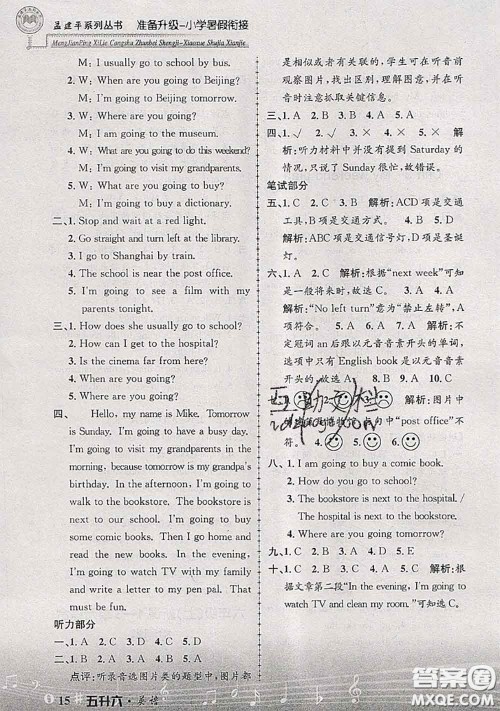 孟建平系列丛书 准备升级-小学暑假衔接
MengJianPing XiLie Congshu Zhunbei Shengji-Xiaoxue Shujia Xianjie
M: I usually go to school by bus.
2. W: When are you going to Beijing?
M: I'm going to Beijing tomorrow.
3. W: Where are you going?
M: I am going to the museum.
4. W: What are you going to do this weekend?
M: I'm going to visit my grandparents.
5. W: What are you going to buy?
M: I'm going to buy a dictionary.
二、1. Stop and wait at a red light.
2. Go straight and turn left at the library.
3. I go to Shanghai by train.
4. The school is near the post office.
5. I'm going to see a film with my
parents tonight.
三、1. How does she usually go to school?
2. How can I get to the hospital?
3. Is the cinema far from here?
4. Where are you going?
5. When are you going?
四、 Hello, my name is Mike. Tomorrow
is Sunday. I'm going to have a busy day.
I'm going to visit my grandparents in the
morning, because tomorrow is my grandpa's
birthday. In the afternoon, I'm going to
the bookstore on foot. The bookstore is
next to our school. I'm going to buy
some comic books. Then I'm going to
read the new books. In the evening, I'm
going to watch TV with my family and
write a letter to my pen pal. That
must be fun.
听力部分
一、1. A 2. C 3. D 4. B 5. A
点评:听录音选图片类的题型中,图片都
是类似或者有联系的,注意在听音前
观察图片,目测图片的区别,并在听
音时抓取关键信息。
三、1. C 2. B 3. B 4. A 5. A
四、1. ✓ 2. ✓ 3. × 4. × 5. × 解
析:听力材料中并没有提到 Saturday 的
情况,只说了 Sunday 很忙,故错误。
笔试部分
五、1. B 2. C 3. B 解析:ACD项是交通
工具,B项是交通方式。 4. B 5. D
解析:ABC项是交通信号灯,D项是圣诞
灯。
六、1. B 2. C 3. C 解析:根据“next week”可
知是一般将来时,故选C。 4. A
解析:“No left turn”意为“禁止左转”,A
项符合。 5. B 6. C 7. A 解析:
不定冠词 an 后跟以元音音素开头的单词,
选项中只有 English book 是以元音音素
开头的,故选A。 8. C 9. B 10. C
解析:图片中
中“post office”不
符。
八、1. I am going to buy a comic book.
2. How do you go to school?
3. The bookstore is next to the hospital. /
The hospital is next to the bookstore.
4. Where are you going?
九、1. C 2. A 3. B 4. D 5. E
十、1. C 2. A 3. B 4. A 5. C 解析:根
据文章第二段“In the evening, I'm going
to watch TV and clean my room.”可选C。
15 五升六·英语
答案圈
MXQE.COM